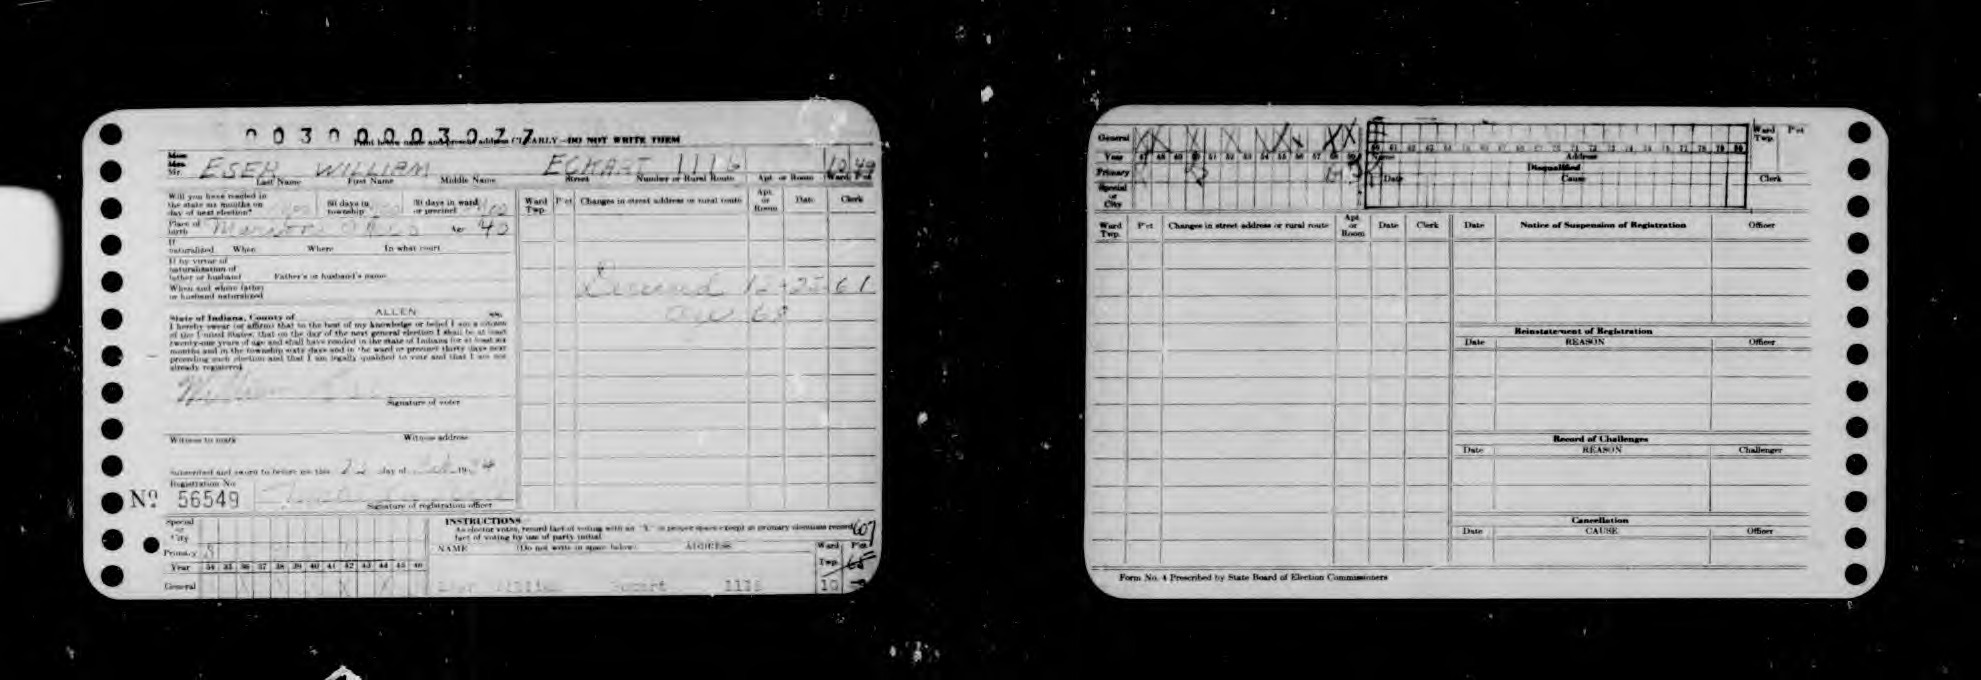 00300003077
Print below name and present address CLEARLY—DO NOT WRITE THEM
Miss
Mrs.
Mr. ESER WILLIAM ECKART 1116 10
Last Name First Name Middle Name Street Number or Rural Route Apt. or Room Ward
Will you have resided in
the state six months on
day of next election? 60 days in
township 30 days in ward
or precinct
Place of
birth Marion Ohio Age 40
If
naturalized When Where In what court
If by virtue of
naturalization of
father or husband Father's or husband's name
When and where father
or husband naturalized
State of Indiana, County of ALLEN ss:
I hereby swear (or affirm) that to the best of my knowledge or belief I am a citizen
of the United States; that on the day of the next general election I shall be at least
twenty-one years of age and shall have resided in the state of Indiana for at least six
months and in the township sixty days and in the ward or precinct thirty days next
preceding such election and that I am legally qualified to vote and that I am not
already registered.
William Eser
Signature of voter
Witness to mark Witness address
Subscribed and sworn to before me this 22 day of 1934
Registration No.
No. 56549
Signature of registration officer
Ward
Twp. P'ct Changes in street address or rural route Apt.
or
Room Date Clerk
Deceased 12-25-61
Special
or
City
Primary
Year 34 35 36 37 38 39 40 41 42 43 44 45 46
General
INSTRUCTIONS
As elector votes, record fact of voting with an "X" in proper space except at primary elections record
fact of voting by use of party initial.
607
NAME (Do not write in space below) ADDRESS Ward
Twp. P'ct
Eser William Eckart 1116 10
General
Year 47 48 49 50 51 52 53 54 55 56 57 58 59
Primary
Special
or
City
60 61 62 63 64 65 66 67 68 69 70 71 72 73 74 75 76 77 78 79 80
Name Address
Disqualified
Date Cause
Ward
Twp. P'ct
Clerk
Ward
Twp. P'ct Changes in street address or rural route Apt.
or
Room Date Clerk
Date Notice of Suspension of Registration Officer
Reinstatement of Registration
Date REASON Officer
Record of Challenges
Date REASON Challenger
Cancellation
Date CAUSE Officer
Form No. 4 Prescribed by State Board of Election Commissioners